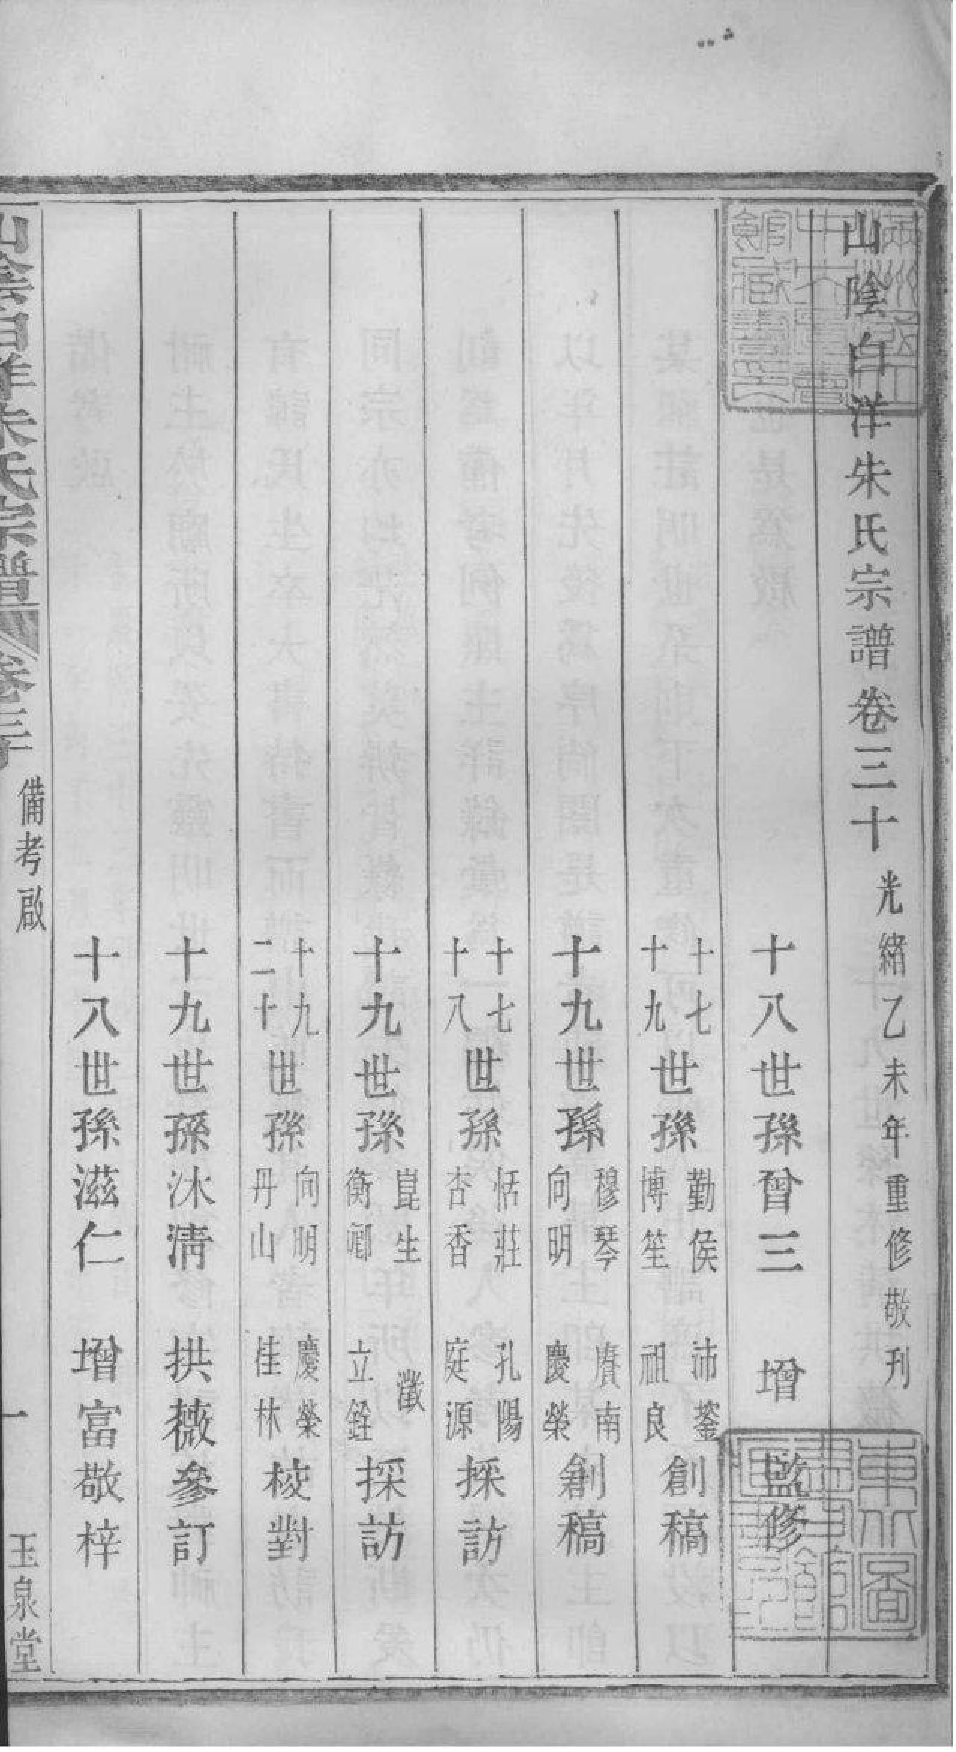 山陰白洋朱氏宗譜卷三十 光緒乙未年重修敬刊
十八世孫曾三 增 監修
十七十九世孫勤侯博笙 沛鋆祖良創稿
十九世孫穆琴向明 賡南慶榮創稿
十七十八世孫恬莊杏香 孔陽庭源採訪
十九世孫崑生衡卿 瀓立銓採訪
十九二十世孫向明丹山 慶榮桂林校對
十九世孫沐清 拱薇參訂
十八世孫滋仁 增富敬梓
山陰白洋朱氏宗譜 卷三十 備考啟 一 玉泉堂